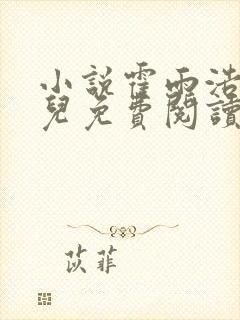 小說霍雨浩
兒免費閱讀
苡菲